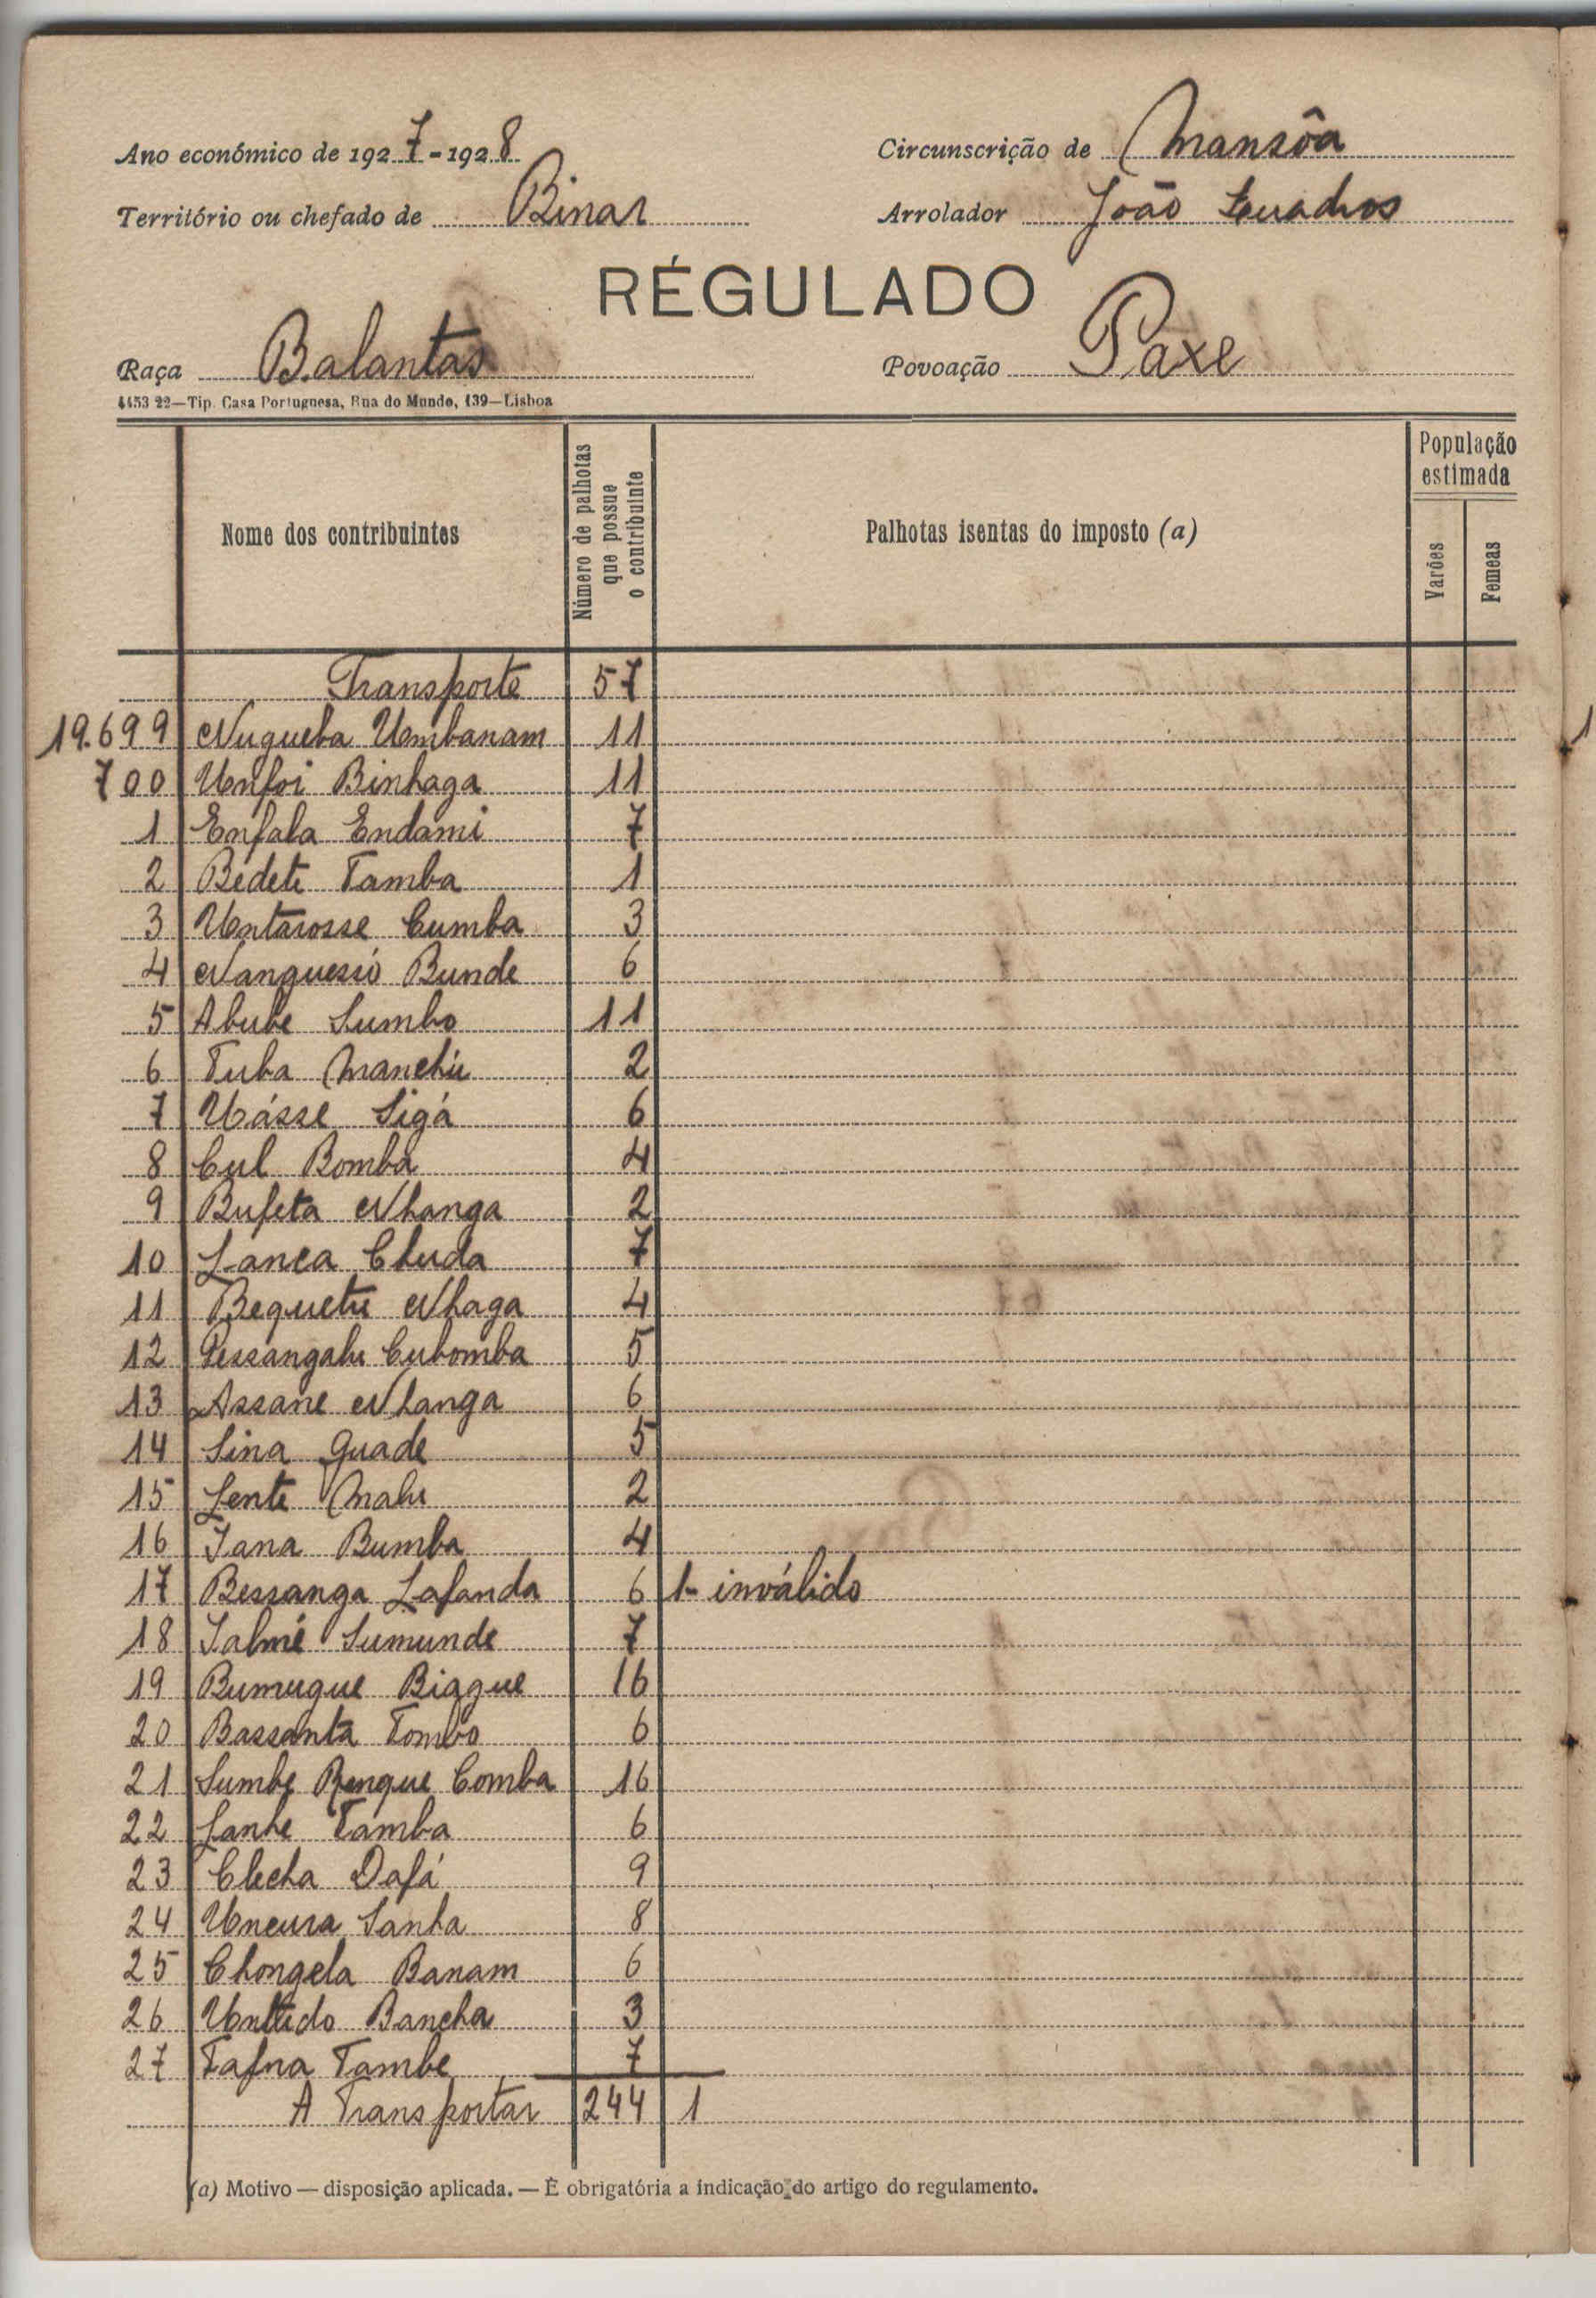 Ano económico de 1927-1928 Circunscrição de Mansôa
Território ou chefado de Binar Arrolador João Quadros
RÉGULADO
Raça Balantas Povoação Paxe
4453 22—Tip. Casa Portuguesa, Rua do Mundo, 139—Lisboa
Nome dos contribuintes Número de palhotas que possue o contribuinte Palhotas isentas do imposto (a) População estimada Varões Femeas
Transporte 57
19.699 Nugueba Umbanam 11
700 Unfoi Binhaga 11
1 Enfala Endami 7
2 Bedeti Tamba 1
3 Untarosse Cumba 3
4 Nanguessó Bunde 6
5 Abube Sumbo 11
6 Tuba Manchu 2
7 Uásse Sigá 6
8 Cul Bomba 4
9 Bufeta Nhanga 2
10 Lanca Chuda 7
11 Bequetu Nhaga 4
12 Pessangalu Cubomba 5
13 Assane Nhanga 6
14 Sina Guade 5
15 Lente Malu 2
16 Iana Bumba 4
17 Bessanga Lafanda 6 1- inválido
18 Ialmé Sumunde 7
19 Bumugue Biague 16
20 Bassanta Tombo 6
21 Sumbe Renque Comba 16
22 Sanhe Tamba 6
23 Clecha Dafá 9
24 Uncura Sanha 8
25 Chongela Banam 6
26 Untudo Bancha 3
27 Tafna Tambe 7
A Transportar 244 1
(a) Motivo — disposição aplicada. — É obrigatória a indicação do artigo do regulamento.